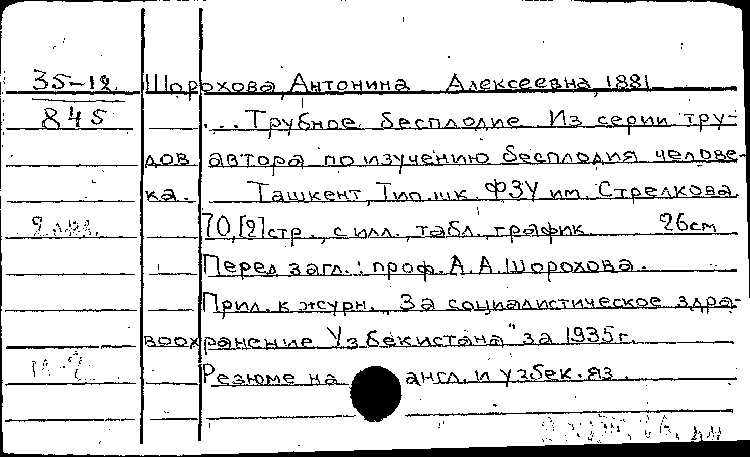 35-12 Шорохова, Антонина Алексеевна, 1881
845 ...Трубное бесплодие. Из серии тру-
дов автора по изучению бесплодия челове-
ка. Ташкент, Тип. шк. ФЗУ им. Стрелкова
2 экз. 70,[2] стр., с илл., табл., график. 26см
Перед загл.: проф. А.А. Шорохова.
Прил. к журн. "За социалистическое здра-
воохранение Узбекистана" за 1935г.
Резюме на англ. и узбек. яз.